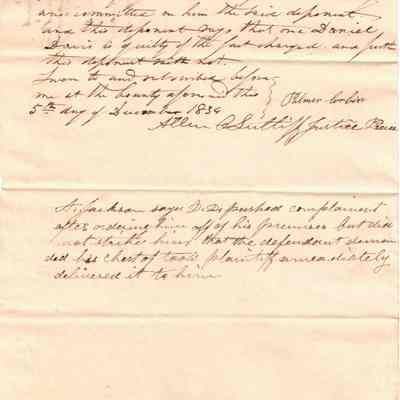 was committed on him the said deponent
and this deponent says that one Daniel
Davis is guilty of the fact charged and further
this deponent saith not.
Sworn to and subscribed before
me at the County aforesaid this } Palmer
5th day of December 1834
Allen C Sutliff Justice Peace
A. Jackson says D. D. pushed complainent
after ordering him off of his premises but did
not strike him that the defendant deman
ded his chest of tools plaintiff ameadiately
delivered it to him